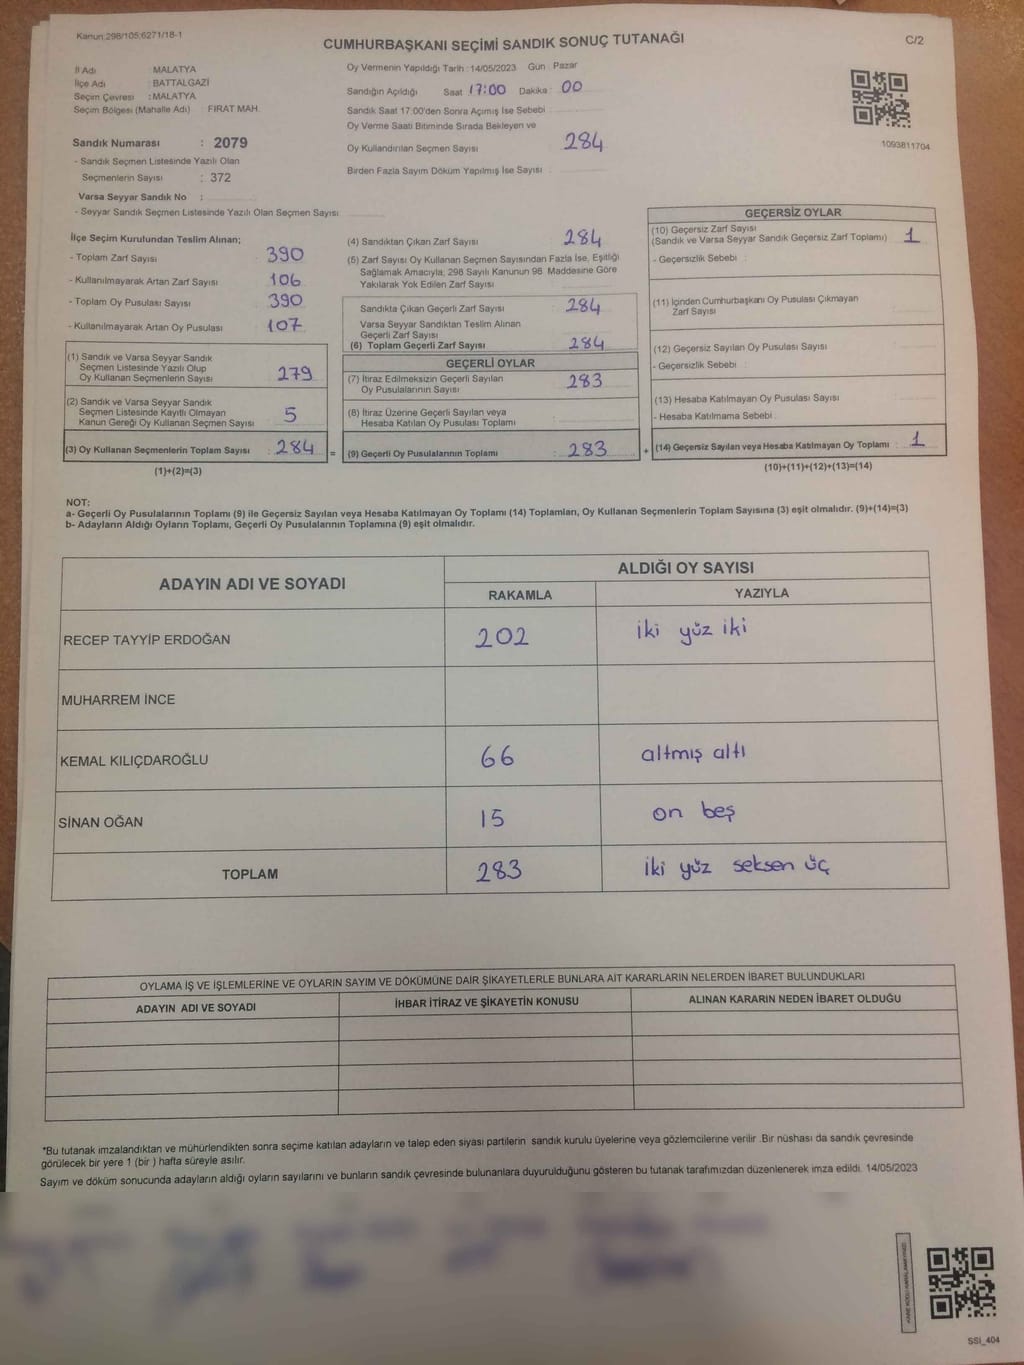 Kanun:298/105;6271/18-1
CUMHURBAŞKANI SEÇİMİ SANDIK SONUÇ TUTANAĞI
C/2
İl Adı : MALATYA
İlçe Adı : BATTALGAZİ
Seçim Çevresi : MALATYA
Seçim Bölgesi (Mahalle Adı) : FIRAT MAH.
Sandık Numarası : 2079
- Sandık Seçmen Listesinde Yazılı Olan
Seçmenlerin Sayısı : 372
Varsa Seyyar Sandık No :
- Seyyar Sandık Seçmen Listesinde Yazılı Olan Seçmen Sayısı
Oy Vermenin Yapıldığı Tarih : 14/05/2023 Gün : Pazar
Sandığın Açıldığı Saat 17:00 Dakika : 00
Sandık Saat 17:00'den Sonra Açımış İse Sebebi
Oy Verme Saati Bitiminde Sırada Bekleyen ve
Oy Kullandırılan Seçmen Sayısı 284
Birden Fazla Sayım Döküm Yapılmış İse Sayısı
1093811704
İlçe Seçim Kurulundan Teslim Alınan;
- Toplam Zarf Sayısı 390
- Kullanılmayarak Artan Zarf Sayısı 106
- Toplam Oy Pusulası Sayısı 390
- Kullanılmayarak Artan Oy Pusulası 107
(1) Sandık ve Varsa Seyyar Sandık
Seçmen Listesinde Yazılı Olup
Oy Kullanan Seçmenlerin Sayısı 279
(2) Sandık ve Varsa Seyyar Sandık
Seçmen Listesinde Kayıtlı Olmayan
Kanun Gereği Oy Kullanan Seçmen Sayısı 5
(3) Oy Kullanan Seçmenlerin Toplam Sayısı : 284 =
(1)+(2)=(3)
(4) Sandıktan Çıkan Zarf Sayısı 284
(5) Zarf Sayısı Oy Kullanan Seçmen Sayısından Fazla İse, Eşitliği
Sağlamak Amacıyla, 298 Sayılı Kanunun 98. Maddesine Göre
Yakılarak Yok Edilen Zarf Sayısı
Sandıkta Çıkan Geçerli Zarf Sayısı 284
Varsa Seyyar Sandıktan Teslim Alınan
Geçerli Zarf Sayısı
(6) Toplam Geçerli Zarf Sayısı 284
GEÇERLİ OYLAR
(7) İtiraz Edilmeksizin Geçerli Sayılan
Oy Pusulalarının Sayısı 283
(8) İtiraz Üzerine Geçerli Sayılan veya
Hesaba Katılan Oy Pusulası Toplamı
(9) Geçerli Oy Pusulalarının Toplamı : 283 +
GEÇERSİZ OYLAR
(10) Geçersiz Zarf Sayısı
(Sandık ve Varsa Seyyar Sandık Geçersiz Zarf Toplamı) 1
- Geçersizlik Sebebi :
(11) İçinden Cumhurbaşkanı Oy Pusulası Çıkmayan
Zarf Sayısı
(12) Geçersiz Sayılan Oy Pusulası Sayısı
- Geçersizlik Sebebi :
(13) Hesaba Katılmayan Oy Pusulası Sayısı
- Hesaba Katılmama Sebebi :
(14) Geçersiz Sayılan veya Hesaba Katılmayan Oy Toplamı : 1
(10)+(11)+(12)+(13)=(14)
NOT:
a- Geçerli Oy Pusulalarının Toplamı (9) ile Geçersiz Sayılan veya Hesaba Katılmayan Oy Toplamı (14) Toplamları, Oy Kullanan Seçmenlerin Toplam Sayısına (3) eşit olmalıdır. (9)+(14)=(3)
b- Adayların Aldığı Oyların Toplamı, Geçerli Oy Pusulalarının Toplamına (9) eşit olmalıdır.
ADAYIN ADI VE SOYADI
ALDIĞI OY SAYISI
RAKAMLA YAZIYLA
RECEP TAYYİP ERDOĞAN 202 iki yüz iki
MUHARREM İNCE
KEMAL KILIÇDAROĞLU 66 altmış altı
SİNAN OĞAN 15 on beş
TOPLAM 283 iki yüz seksen üç
OYLAMA İŞ VE İŞLEMLERİNE VE OYLARIN SAYIM VE DÖKÜMÜNE DAİR ŞİKAYETLERLE BUNLARA AİT KARARLARIN NELERDEN İBARET BULUNDUKLARI
ADAYIN ADI VE SOYADI İHBAR İTİRAZ VE ŞİKAYETİN KONUSU ALINAN KARARIN NEDEN İBARET OLDUĞU
*Bu tutanak imzalandıktan ve mühürlendikten sonra seçime katılan adayların ve talep eden siyasi partilerin sandık kurulu üyelerine veya gözlemcilerine verilir. Bir nüshası da sandık çevresinde
görülecek bir yere 1 (bir ) hafta süreyle asılır.
Sayım ve döküm sonucunda adayların aldığı oyların sayılarını ve bunların sandık çevresinde bulunanlara duyurulduğunu gösteren bu tutanak tarafımızdan düzenlenerek imza edildi. 14/05/2023
SSI_404